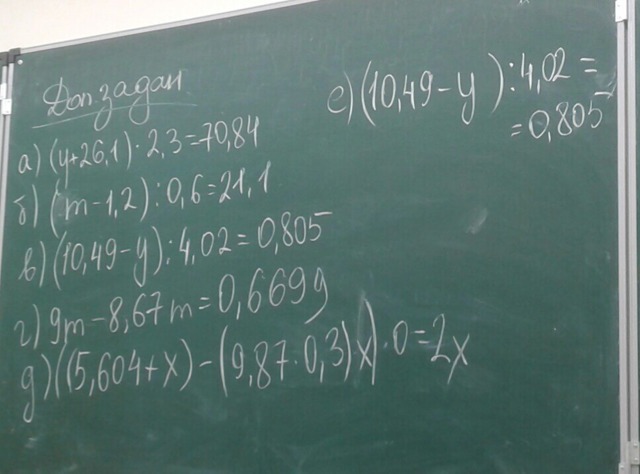 Доп. задан
а) (y+26,1)·2,3=70,84
б) (m-1,2):0,6=21,1
в) (10,49-y):4,02=0,805
г) 9m-8,67m=0,6699
д) ((5,604+x)-(9,87·0,3)x)·0=2x
е) (10,49-y):4,02=
=0,805